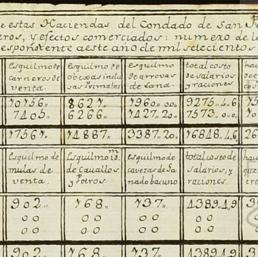 e estas Haciendas del Condado de San
eros, y efectos comerciados: numero de l
esponde este año de mil setecientos
Esquilmo de Esquilmo de esquilmo total costo
carneros de obejas inclu de arrovas de salarios
venta. sas Primales de Lana. y raciones.
10156. 8621. 1960.00 9275.4.6
7405. 6266. 1427.20. 7573.0.0
17561. 14887. 3387.20. 16848.4.6
Esquilmo de Esquilmo esquilmo de total costo de
mulas de de Cavallos cavezas de Ga salarios, y
venta. y Potros. nado bacuno raciones.
902. 768. 737. 4389.4.9
00 00 00 00
00 00 00 00
902. 768. 737. 4389.4.9